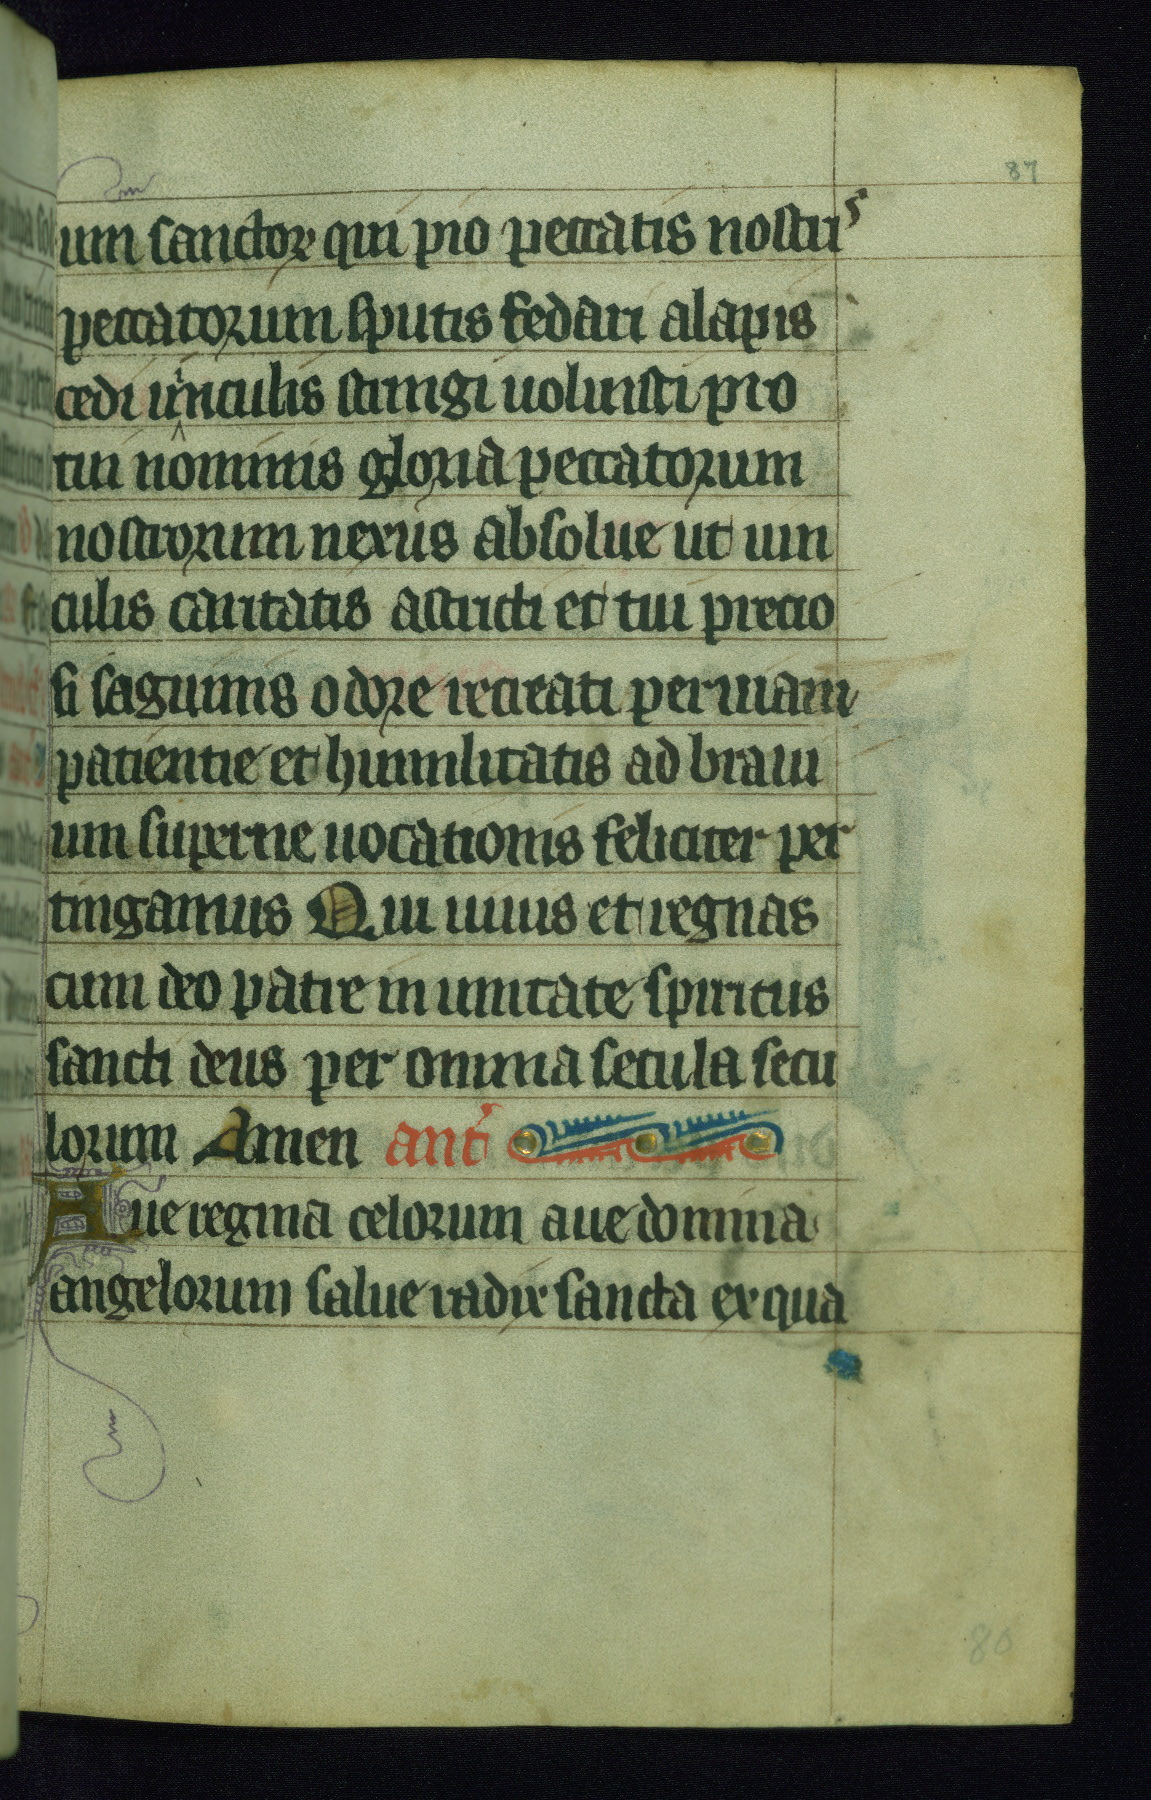 87
um sanctoꝝ qui pro peccatis nostris
peccatorum sputis fedari alapis
cedi uinculis stringi uoluisti pro
tui nominis gloria peccatorum
nostrorum nexus absolue ut uin
culis caritatis astricti et tui precio
si saguinis odore recreati per uiam
patientie et humilitatis ad braui
um superne uocationis feliciter per
tingamus Qui uiuis et regnas
cum deo patre in unitate spiritus
sancti deus per omnia secula secu
lorum Amen ant'
Aue regina celorum aue domina
angelorum salue radix sancta ex qua
86